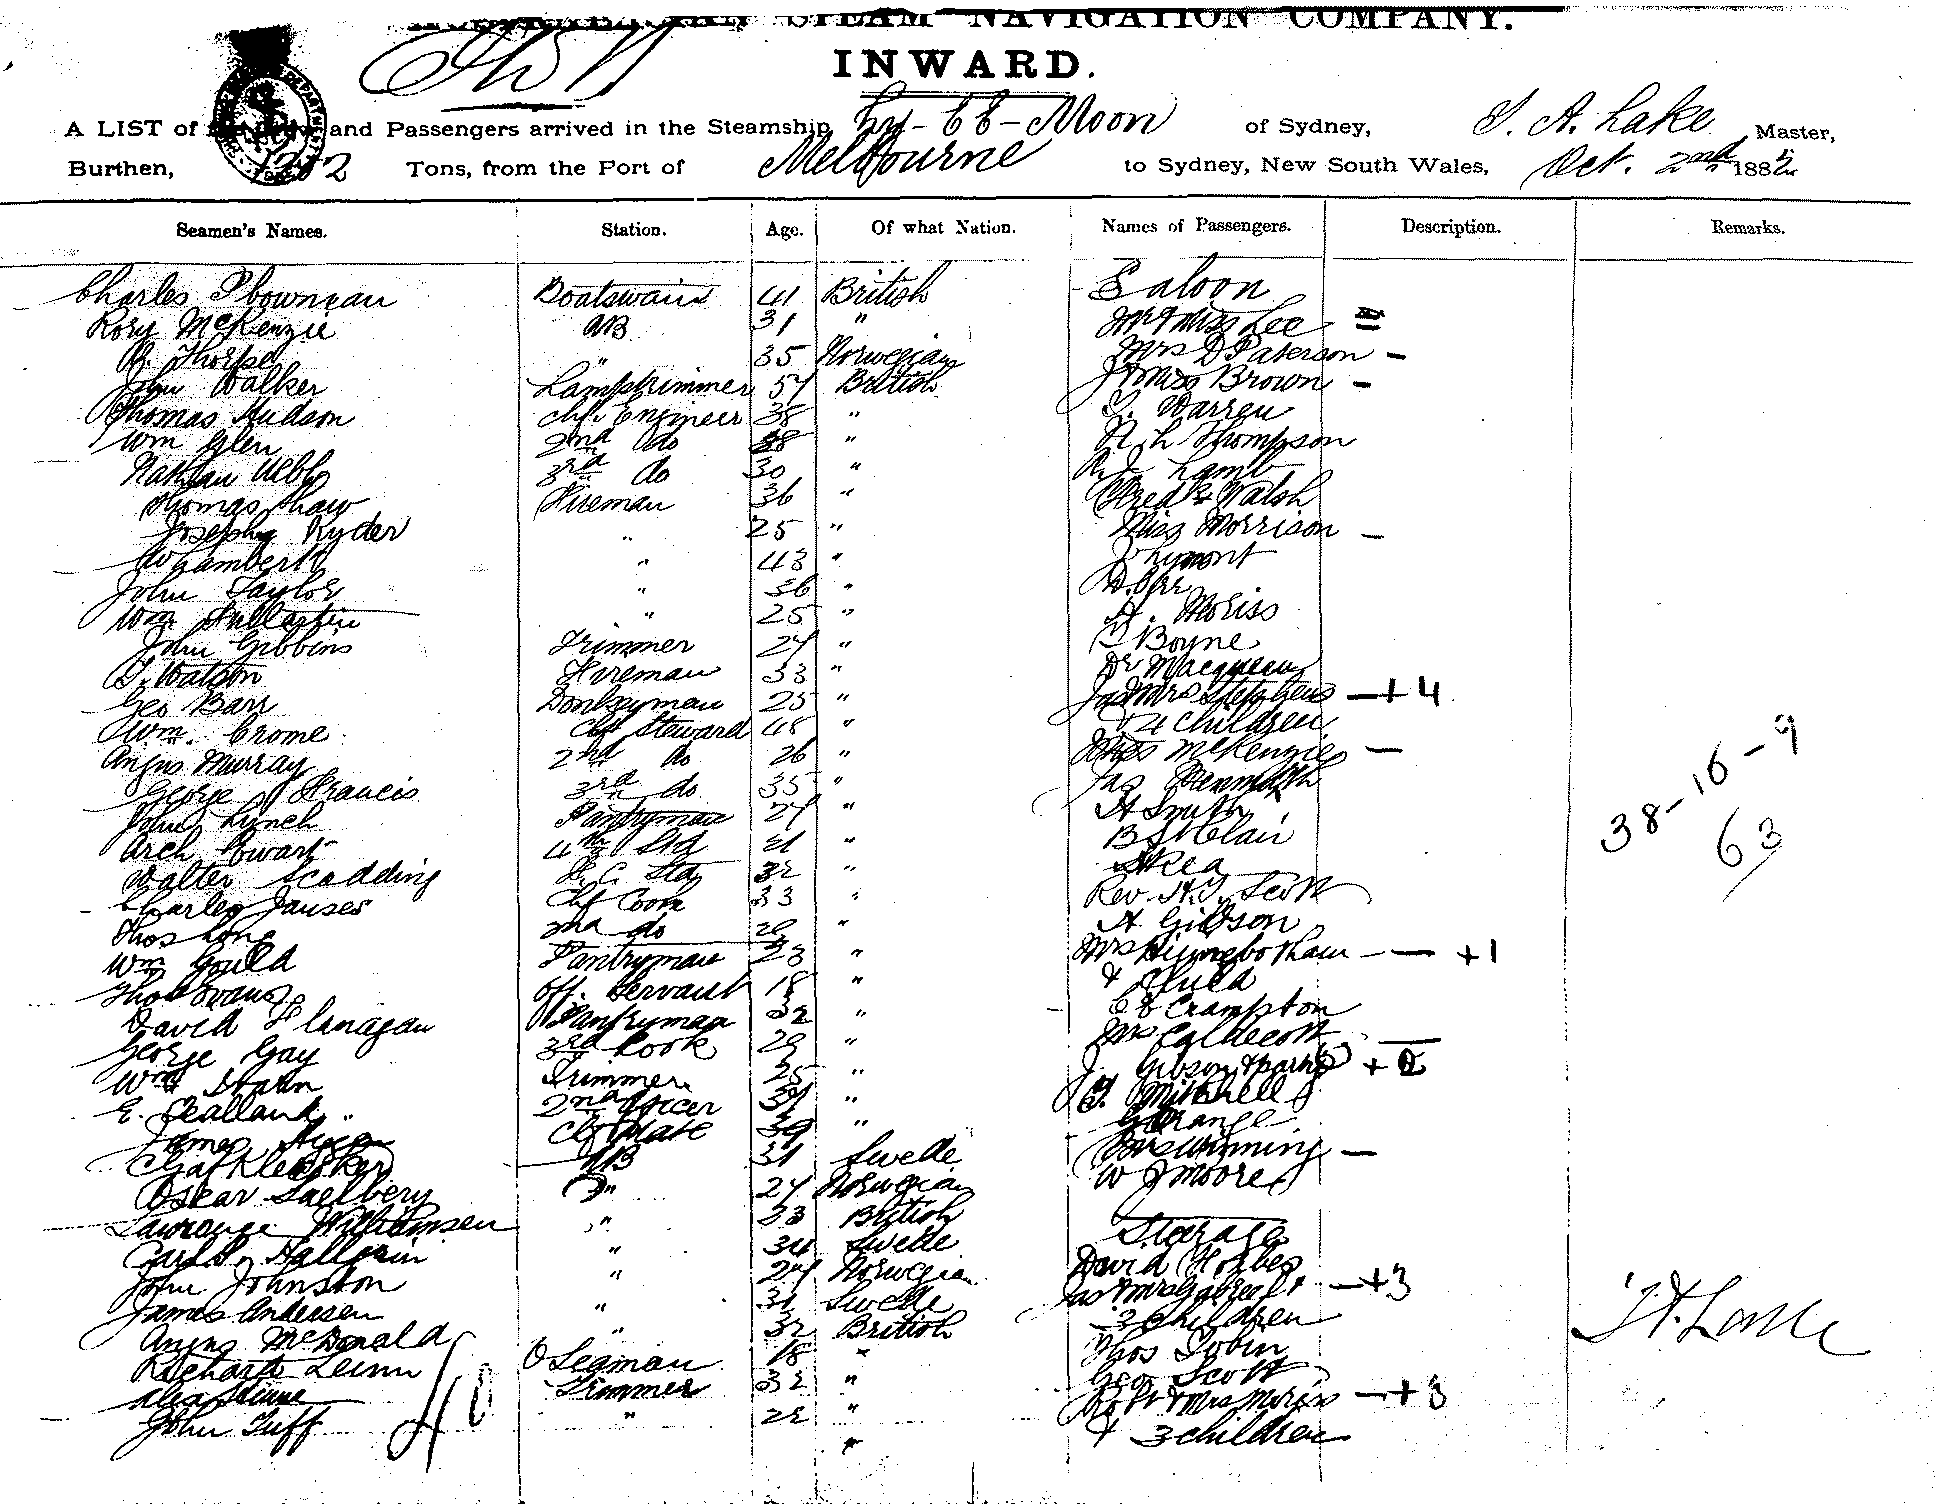 STEAM NAVIGATION COMPANY.
INWARD.
A LIST of and Passengers arrived in the Steamship Ly-EE-Moon of Sydney, S. A. Lake Master,
Burthen, 1202 Tons, from the Port of Melbourne to Sydney, New South Wales, Oct. 2nd 1882
Seamen's Names. Station. Age. Of what Nation. Names of Passengers. Description. Remarks.
Charles Plowman Boatswain 41 British Saloon
Rory McKenzie AB 31 " Mr & Miss Lee
R. Thorpe " 35 Norwegian Mrs D Paterson -
John Walker Lamptrimmer 57 British Miss Brown -
Thomas Hudson Chf. Engineer 38 " Warren
Wm Glen 2nd do " Thompson
Nathan Webb 3rd do 30 " Lamb
Thomas Shaw Fireman 36 " Fredk Walsh
Joseph Ryder " 25 " Miss Morrison -
W Lambert " 43 " J Lymont
John Taylor " 36 " D. Orr
Wm Fullartin " 25 " A. Moriss
John Gibbins Trimmer 24 " Boyne
T. Watson Fireman 33 " Dr Macqueen
Geo Barr Donkeyman 25 " Jas & Mrs Stephens - + 4
Wm. Crome Chf Steward 45 " & 4 children
Angus Murray 2nd do 26 " McKenzie -
George Francis 3rd do 35 " Jas
John Lynch Pantryman 24 " A Smith
Arch Cowart 4th Std 21 " B St Clair
Walter Scadding Std 32 " Rea
Charles Chf Cook 33 " Rev. H. T. Scott
Thos Long 2nd do 29 " A Gibson
Wm Gould Pantryman 23 " Mrs Higinbotham - - + 1
Thos Evans Off. Servant 18 " & child
David Flanagan Pantryman 32 " C E Crampton
George Gay 3rd Cook 29 " Mrs Caldecott -
Wm Trimmer 25 " J. Gibson + 2
E. 2nd Officer 31 " Mitchell
James Chf Mate 39 " Grange
AB 31 Swede Mrs Winning -
Oscar " 24 Norwegian W J Moore
Lawrence Williamsen " 33 British Sterage
Carl Hallgrin " 34 Swede David Forbes
John Johnston " 24 Norwegian Jas & Mrs - + 3
James Andersen " 31 Swede 3 children
Angus McDonald " 32 British Thos Tobin
Richard O Seaman 18 " Geo Scott
Alex Trimmer 32 " Robt & Mrs Moriss - + 3
John Tuff " 22 " & 3 children
"
40
38-16-9
63